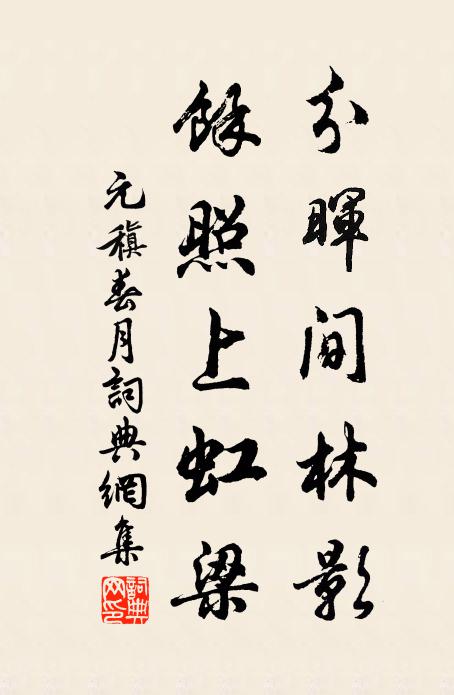 分暉間林影
餘照上虹梁
元稹春月詞典網集
詞典網印